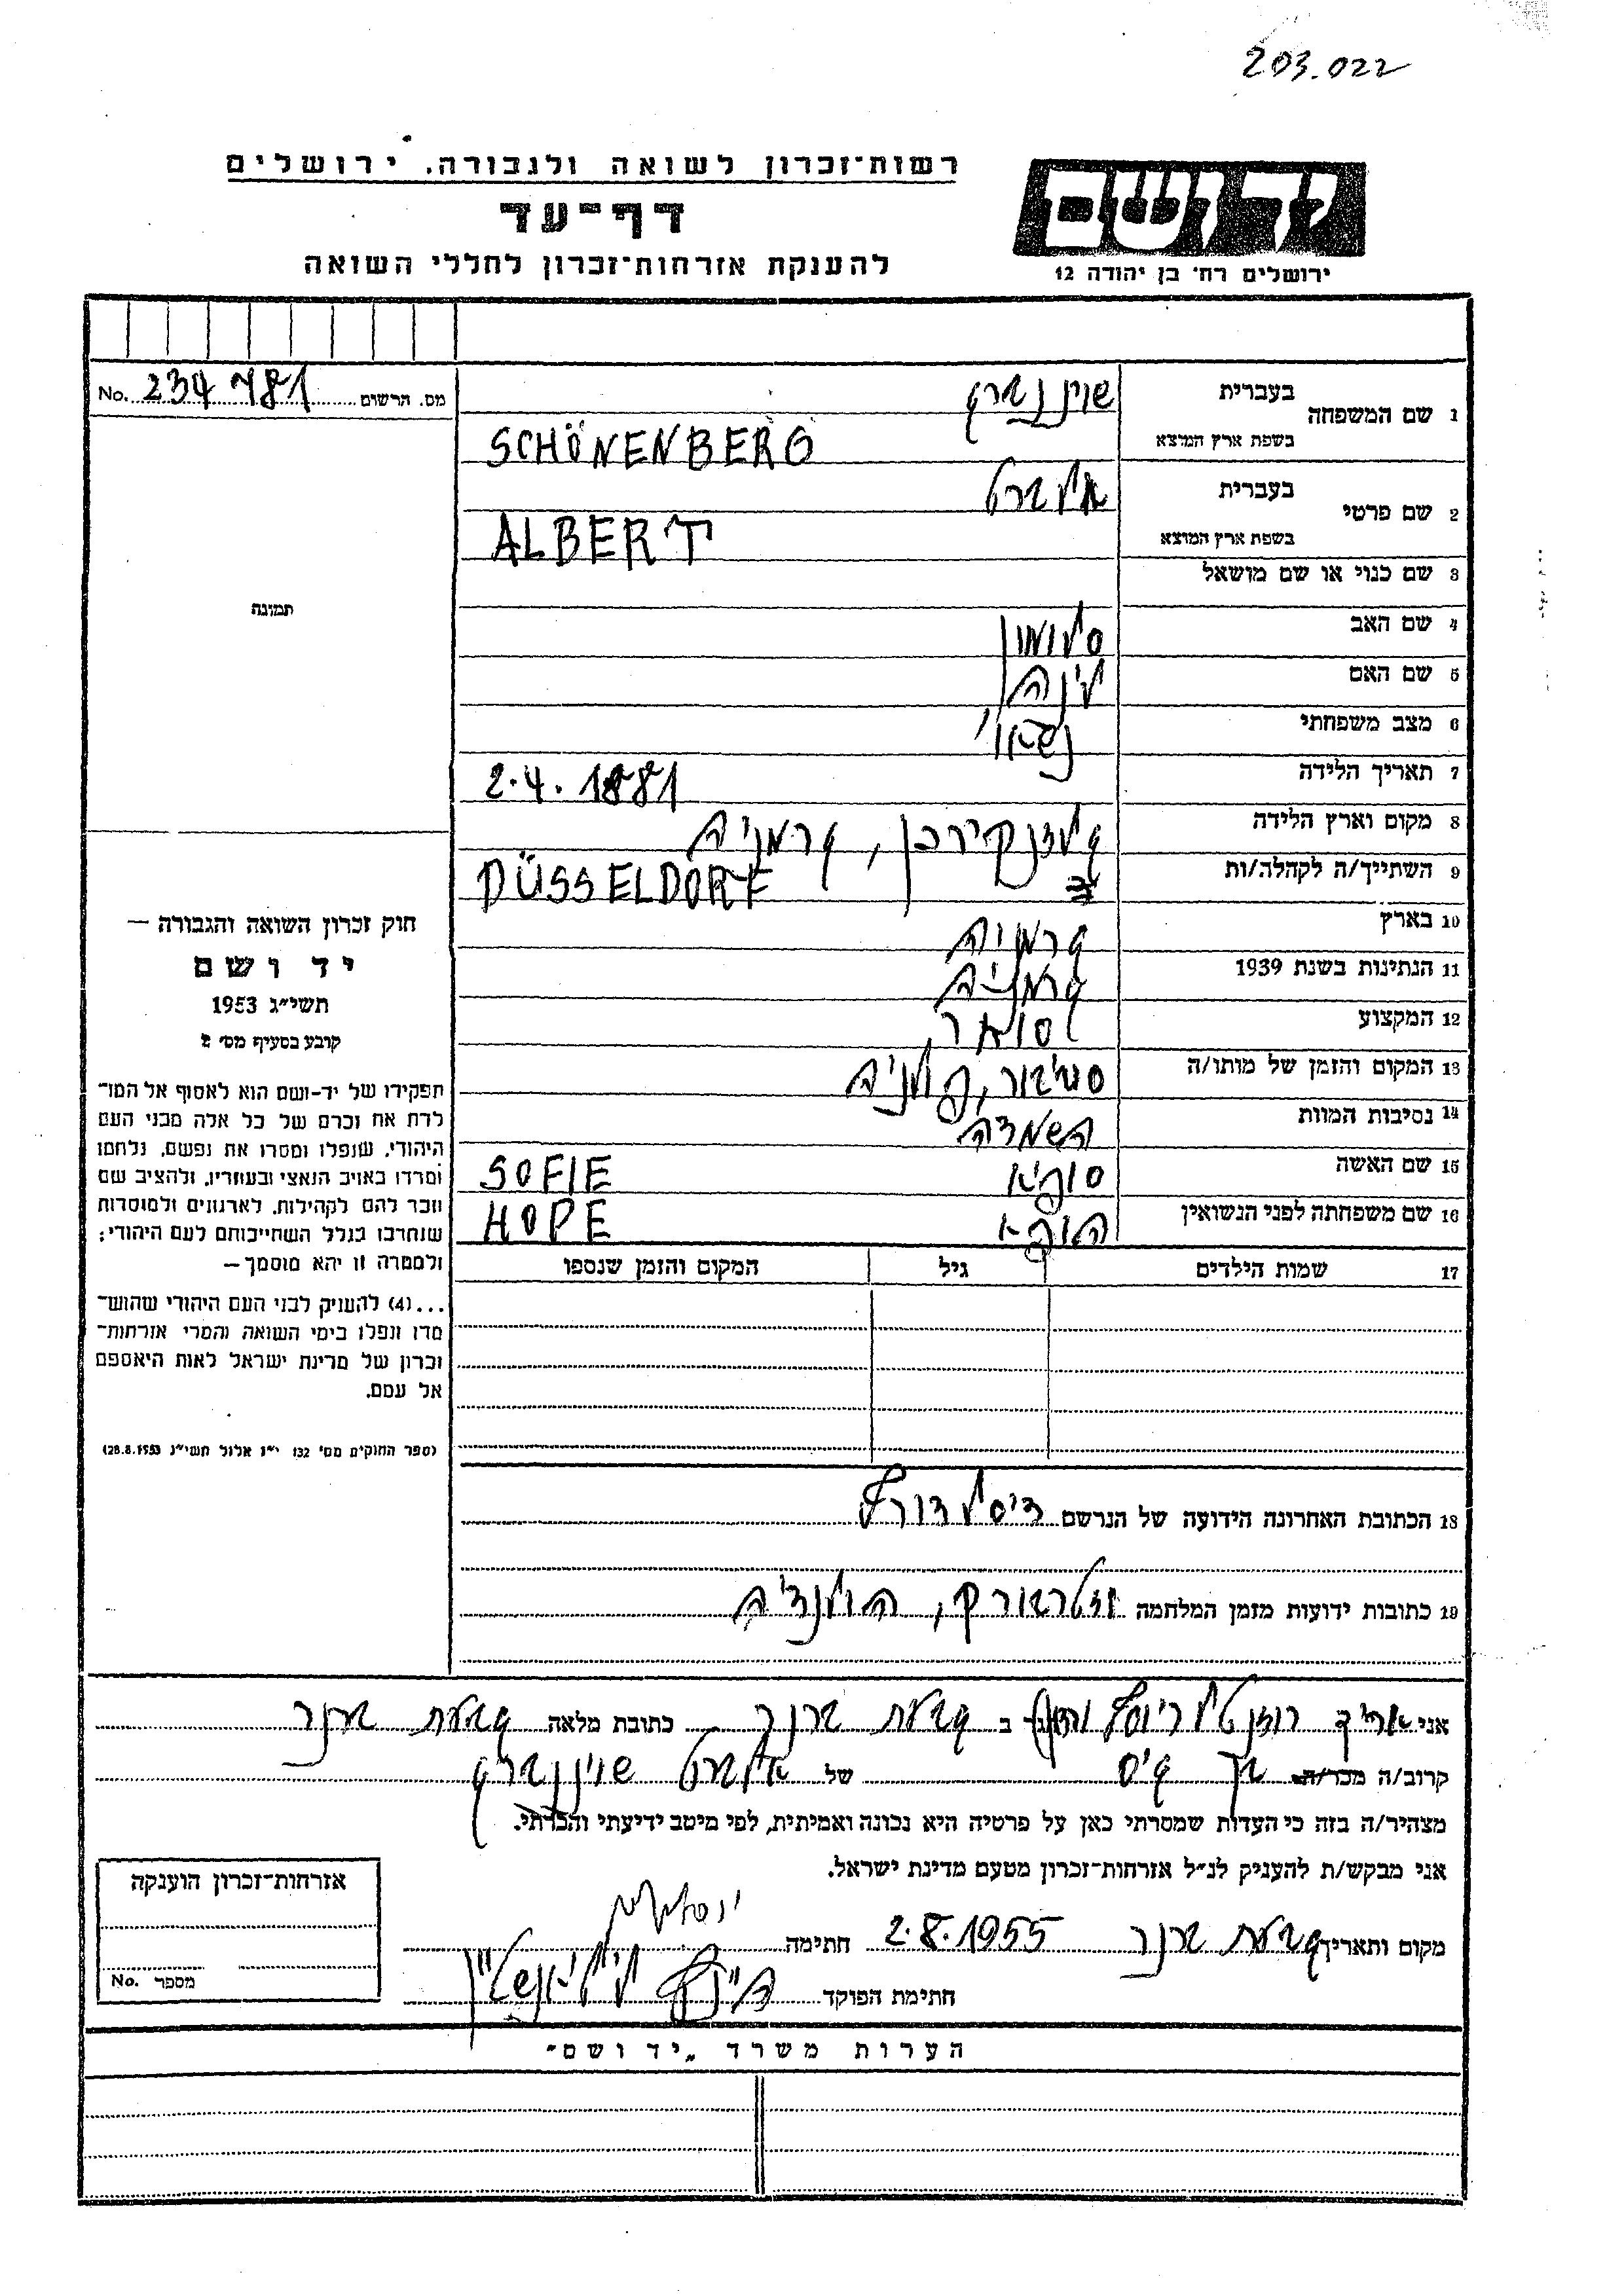 203.022
רשות־זכרון לשואה ולגבורה. ירושלים
דף־עד
להענקת אזרחות־זכרון לחללי השואה
יד ושם
ירושלים רח׳ בן יהודה 12
מס. הרשום 234 781 No.
1 שם המשפחה
בעברית שוין נברג
בשפת ארץ המוצא SCHÖNENBERG
2 שם פרטי
בעברית אלברט
בשפת ארץ המוצא ALBERT
3 שם כנוי או שם מושאל
4 שם האב סלומון
5 שם האם לינה
6 מצב משפחתי נשוי
7 תאריך הלידה 2.4.1881
8 מקום וארץ הלידה גלזנקירכן, גרמניה
9 השתייך/ה לקהלה/ות DÜSSELDORF
10 בארץ גרמניה
11 הנתינות בשנת 1939 גרמניה
12 המקצוע סוחר
13 המקום והזמן של מותו/ה סוביבור, פולניה
14 נסיבות המוות השמדה
15 שם האשה סופיא SOFIE
16 שם משפחתה לפני הנשואין הופא HOPE
17 שמות הילדים גיל המקום והזמן שנספו
18 הכתובת האחרונה הידועה של הנרשם דיסלדורף
19 כתובות ידועות מזמן המלחמה וסטרבורק, הולנדיה
אני הגר ב גבעת ברנר כתובת מלאה גבעת ברנר
קרוב/ה מכר/ה בן גיס של אלברט שוין נברג
מצהיר/ה בזה כי העדות שמסרתי כאן על פרטיה היא נכונה ואמיתית, לפי מיטב ידיעתי והכרתי.
אני מבקש/ת להעניק לנ״ל אזרחות־זכרון מטעם מדינת ישראל.
מקום ותאריך גבעת ברנר 2.8.1955 חתימה
חתימת הפוקד
תמונה
חוק זכרון השואה והגבורה —
יד ושם
תשי״ג 1953
קובע בסעיף מס׳ 2
תפקידו של יד-ושם הוא לאסוף אל המו־
לדת את זכרם של כל אלה מבני העם
היהודי, שנפלו ומסרו את נפשם, נלחמו
ומרדו באויב הנאצי ובעוזריו, ולהציב שם
וזכר להם לקהילות, לארגונים ולמוסדות
שנחרבו בגלל השתייכותם לעם היהודי;
ולמטרה זו יהא מוסמך —
...(4) להעניק לבני העם היהודי שהוש־
מדו ונפלו בימי השואה והמרי אזרחות־
זכרון של מדינת ישראל לאות היאספם
אל עמם.
(ספר החוקים מס׳ 132 י״ז אלול תשי״ג 28.8.1953)
אזרחות־זכרון הוענקה
מספר No.
הערות משרד „יד ושם״